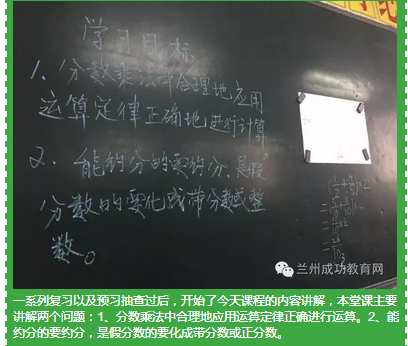 学习目标
1、分数乘法中合理地应用
运算定律正确地进行计算
2、能约分的要约分,是假
分数的要化成带分数或整
数。
兰州成功教育网
一系列复习以及预习抽查过后，开始了今天课程的内容讲解，本堂课主要
讲解两个问题：1、分数乘法中合理地应用运算定律正确进行运算。2、能
约分的要约分，是假分数的要化成带分数或正分数。